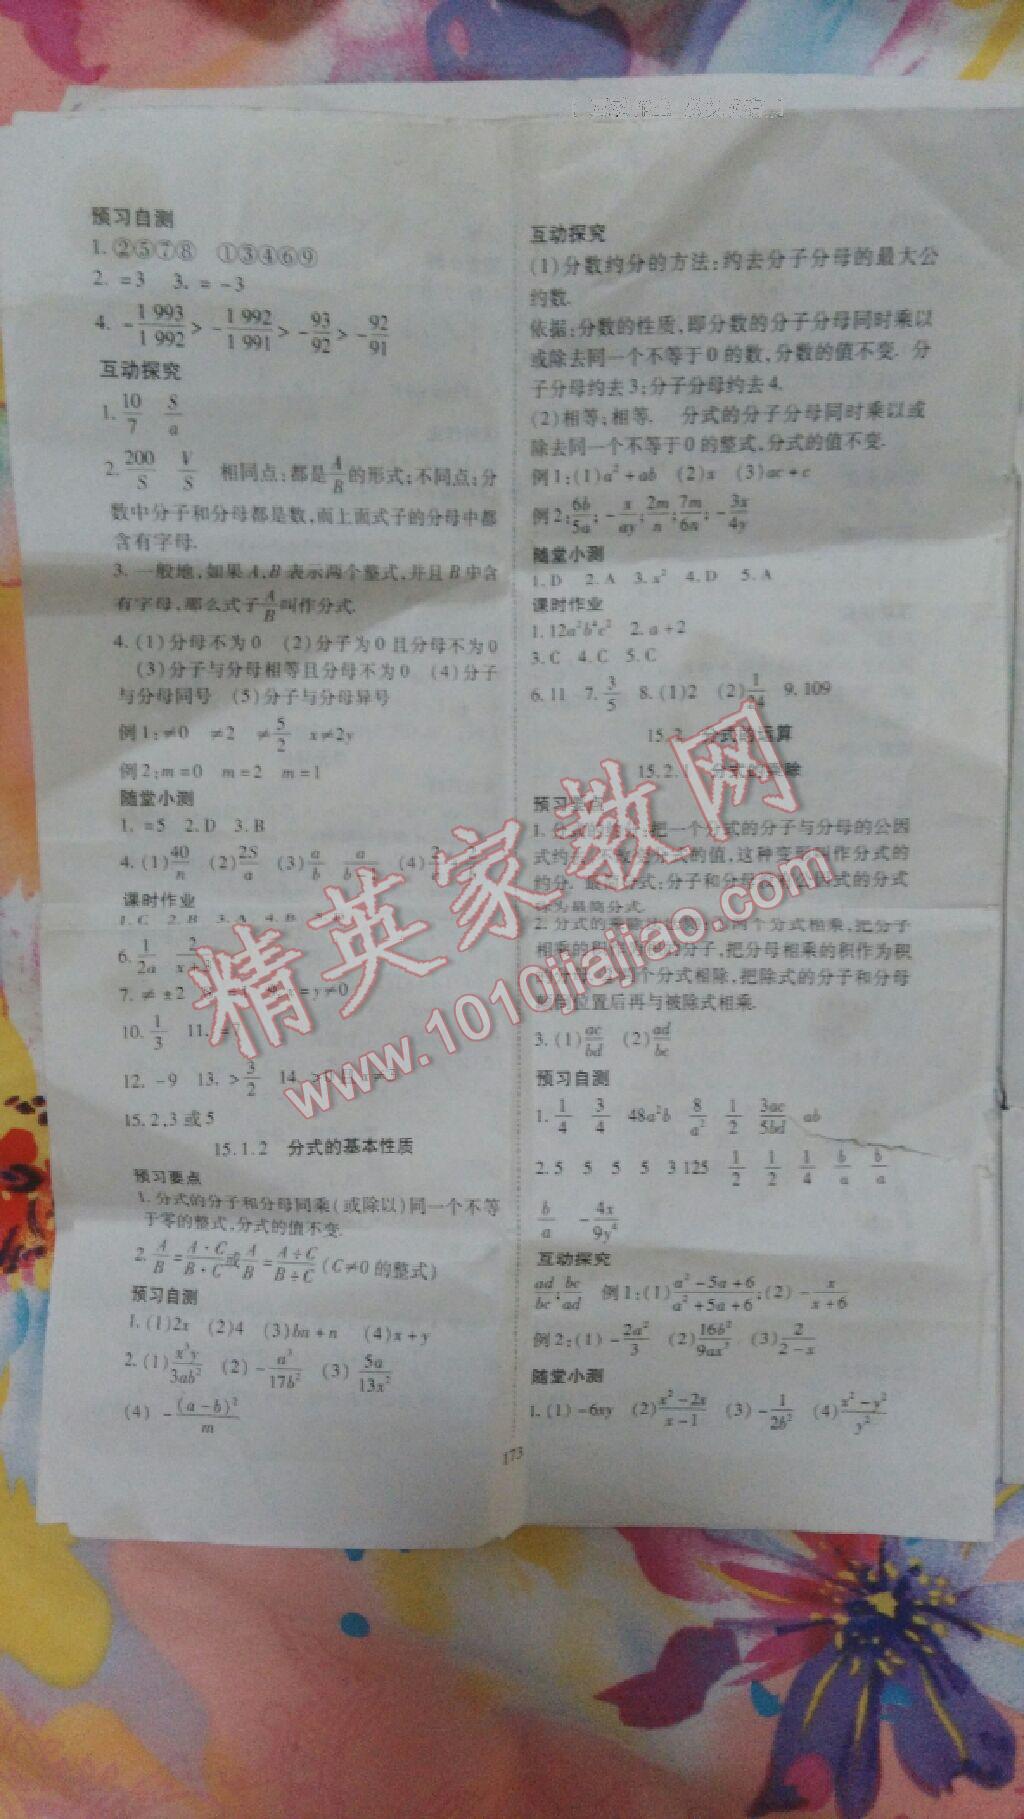 预习自测
1. ②⑤⑦⑧ ①③④⑥⑨
2. =3 3. =-3
4. -1 993/1 992 > -1 992/1 991 > -93/92 > -92/91
互动探究
1. 10/7 S/a
2. 200/S V/S 相同点:都是A/B的形式;不同点:分
数中分子和分母都是数,而上面式子的分母中都
含有字母.
3. 一般地,如果A,B表示两个整式,并且B中含
有字母,那么式子A/B叫作分式.
4. (1)分母不为0 (2)分子为0且分母不为0
(3)分子与分母相等且分母不为0 (4)分子
与分母同号 (5)分子与分母异号
例1:≠0 ≠2 ≠5/2 x≠2y
例2:m=0 m=2 m=1
随堂小测
1. =5 2. D 3. B
4. (1)40/n (2)2S/a (3)a/b
课时作业
1. C 2. B 3. A 4. B
6. 1/2a
7. ≠±2
10. 1/3 11.
12. -9 13. >3/2 14.
15. 2,3或5
15.1.2 分式的基本性质
预习要点
1. 分式的分子和分母同乘(或除以)同一个不等
于零的整式,分式的值不变.
2. A/B=A·C/B·C或A/B=A÷C/B÷C(C≠0的整式)
预习自测
1. (1)2x (2)4 (3)bn+n (4)x+y
2. (1)x³y/3ab² (2)-a³/17b² (3)5a/13x²
(4) -(a-b)²/m
173
互动探究
(1)分数约分的方法:约去分子分母的最大公
约数.
依据:分数的性质,即分数的分子分母同时乘以
或除去同一个不等于0的数,分数的值不变. 分
子分母约去3;分子分母约去4.
(2)相等;相等. 分式的分子分母同时乘以或
除去同一个不等于0的整式,分式的值不变.
例1:(1)a²+ab (2)x (3)ac+c
例2:6b/5a;-x/ay;2m/n;7m/6n;-3x/4y
随堂小测
1. D 2. A 3. x² 4. D 5. A
课时作业
1. 12a²b⁴c² 2. a+2
3. C 4. C 5. C
6. 11 7. 3/5 8. (1)2 (2)1/24 9. 109
15.2 分式的运算
15.2.1 分式的乘除
预习要点
1. 分式的约分:把一个分式的分子与分母的公因
式约去,不改变分式的值,这种变形叫作分式的
约分. 最简分式:分子和分母没有公因式的分式
称为最简分式.
2. 分式的乘除法法则:两个分式相乘,把分子
相乘的积作为积的分子,把分母相乘的积作为积
的分母;两个分式相除,把除式的分子和分母
颠倒位置后再与被除式相乘.
3. (1)ac/bd (2)ad/bc
预习自测
1. 1/4 3/4 48a²b 8/a² 1/2 3ac/5bd ab
2. 5 5 5 5 3 125 1/2 1/2 1/4 b/a b/a
b/a -4x/9y⁴
互动探究
ad/bc;bc/ad 例1:(1)a²-5a+6/a²+5a+6;(2)-x/x+6
例2:(1)-2a²/3 (2)16b²/9ax³ (3)2/2-x
随堂小测
1. (1)-6xy (2)x²-2x/x-1 (3)-1/2b² (4)x²-y²/y²
精英家教网
www.1010jiajiao.com